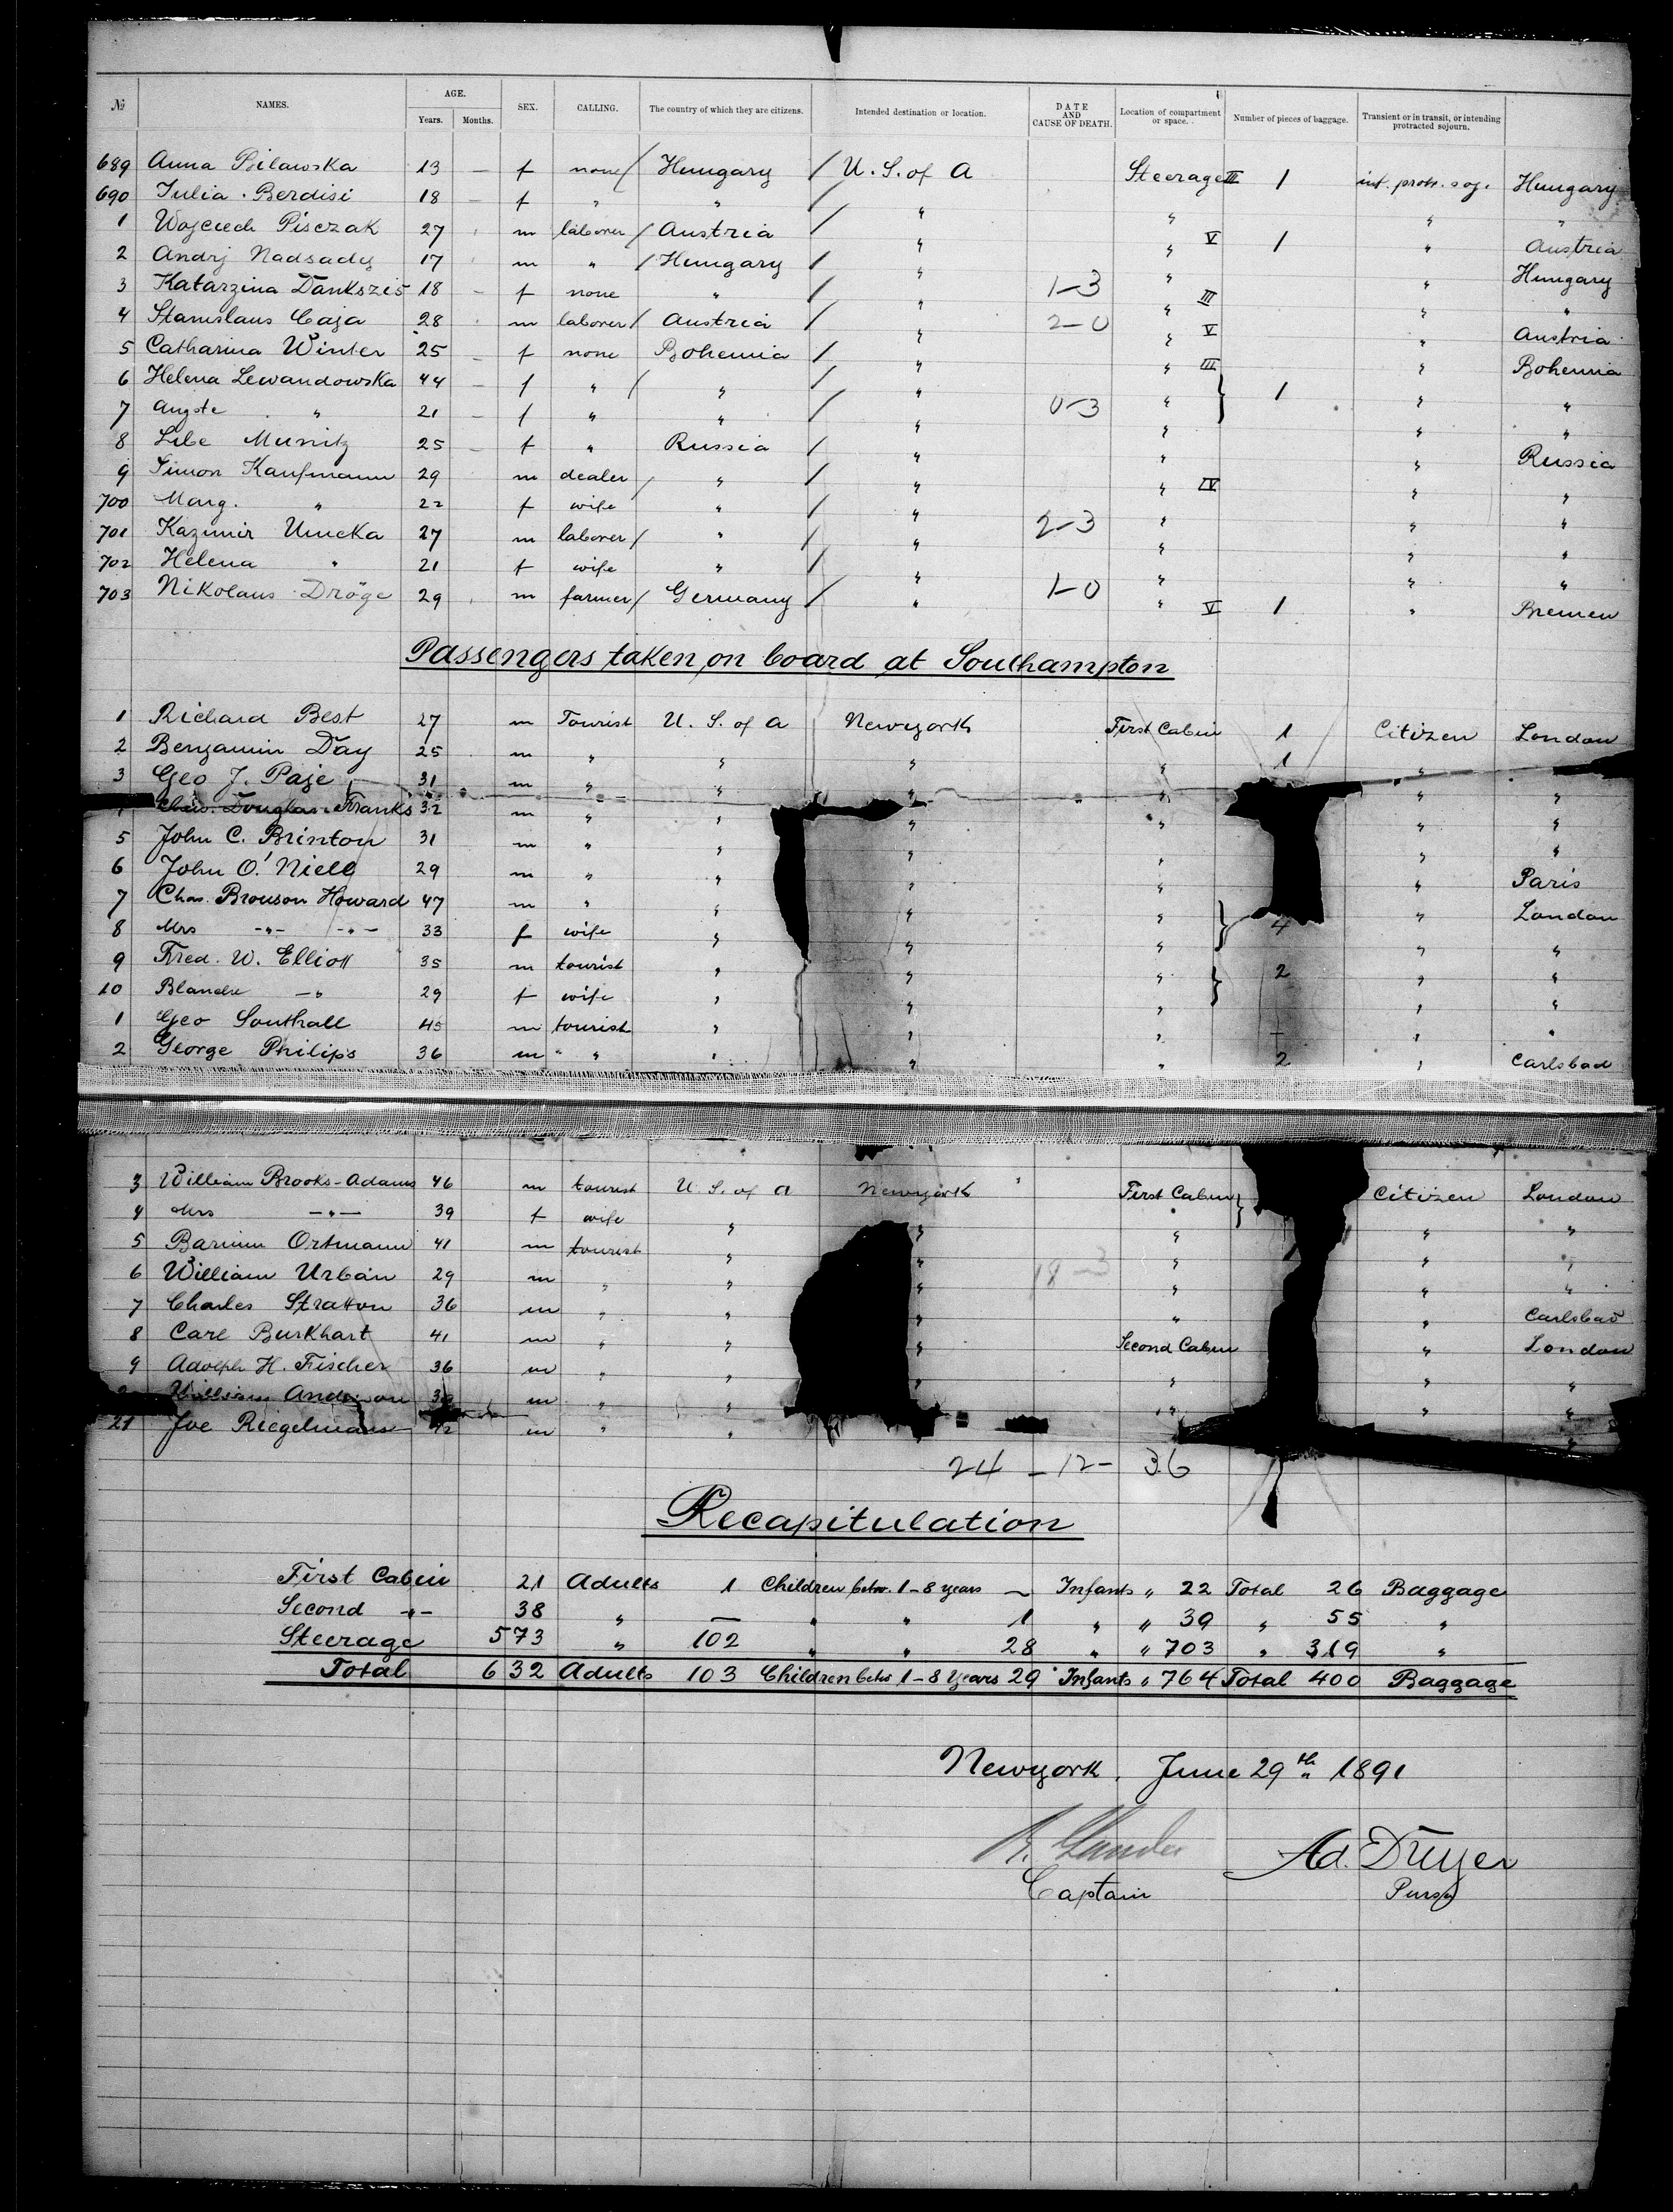 № NAMES. AGE. Years. Months. SEX. CALLING. The country of which they are citizens. Intended destination or location. DATE AND CAUSE OF DEATH. Location of compartment or space. Number of pieces of baggage. Transient or in transit, or intending protracted sojourn.
689 Anna Bilawska 13 — f none / Hungary / U. S. of A Steerage III 1 int. protr. soj. Hungary
690 Julia Berdisi 18 — f " " / " " " "
1 Wojciech Pisczak 27 m laborer / Austria / " " V 1 " Austria
2 Andrj Nadsady 17 m " / Hungary / " " " Hungary
3 Katarzina Dankszis 18 — f none " / " 1-3 " III " "
4 Stanislaus Caja 28 m laborer / Austria / " 2-0 " V " Austria
5 Catharina Winter 25 — f none Bohemia / " " III " Bohemia
6 Helena Lewandowska 44 — f " / " / " " 1 " "
7 Augste " 21 — f " " / " 0-3 " " "
8 Libe Munitz 25 — f " Russia / " " " Russia
9 Simon Kaufmann 29 m dealer / " / " " IV " "
700 Marg. " 22 f wife " / " " " "
701 Kazimir Umcka 27 m laborer / " / " 2-3 " " "
702 Helena " 21 f wife " / " " " "
703 Nikolaus Dröge 29 m farmer / Germany / " 1-0 " V 1 " Bremen
Passengers taken on board at Southampton
1 Richard Best 27 m Tourist U. S. of A Newyork First Cabin 1 Citizen London
2 Benjamin Day 25 m " " " " 1 "
3 Geo J. Paje 31 m " " " " " "
Chas. Douglas Franks 32 m " " " " " "
5 John C. Brinton 31 m " " " " " "
6 John O'Niell 29 m " " " " " Paris
7 Chas. Bronson Howard 47 m " " " " 4 " London
8 Mrs -"- -"- 33 f wife " " " " "
9 Fred. W. Elliott 35 m tourist " " " 2 " "
10 Blanche -" 29 f wife " " " " "
1 Geo Southall 45 m tourist " " " " "
2 George Philips 36 m " " " " " 2 " Carlsbad
3 William Brooks-Adams 46 m tourist U. S. of A Newyork First Cabin Citizen London
4 Mrs -"- 39 f wife " " " " "
5 Barium Ortmann 41 m tourist " " " " "
6 William Urban 29 m " " " 18-3 " " "
7 Charles Stratton 36 m " " " " " Carlsbad
8 Carl Burkhart 41 m " " " Second Cabin " London
9 Adolph H. Fischer 36 m " " " " " "
William Anderson m " " " " "
21 Joe Riegelmann 42 m " " " "
24 - 12 - 36
Recapitulation
First Cabin 21 Adults 1 Children betw. 1-8 years — Infants " 22 Total 26 Baggage
Second -"- 38 " — " " 1 " " 39 " 55 "
Steerage 573 " 102 " " 28 " " 703 " 319 "
Total 632 Adults 103 Children betw 1-8 Years 29 Infants " 764 Total 400 Baggage
Newyork, June 29th 1891
Ad. Dreyer
Captain Purser